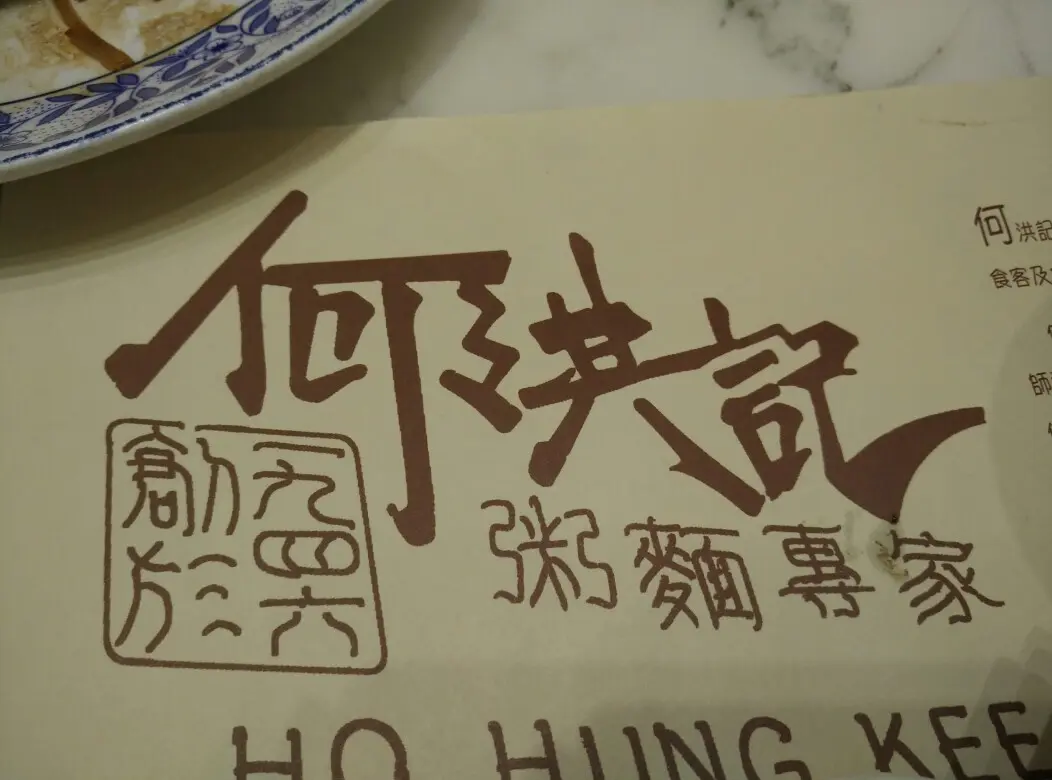 何洪記
創於一九四六
粥麵專家
HO HUNG KEE
何洪記
食客及
師